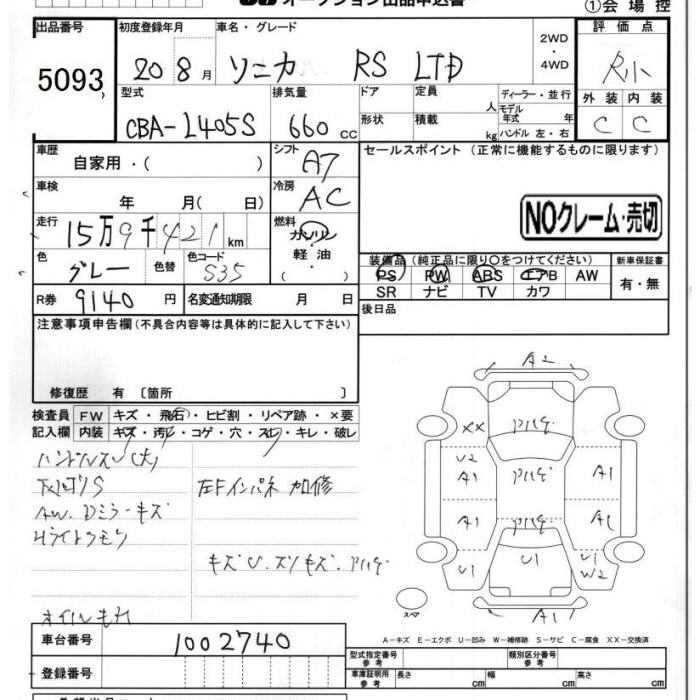 オークション出品申込書
①会場控
出品番号
5093
初度登録年月
20 8 月
車名・グレード
ソニカ RS LTD
2WD
・
4WD
評価点
外装 内装
C C
型式
CBA-L405S
排気量
660 cc
ドア
形状
定員
人
積載
kg
ディーラー・並行
モデル
年式 年
ハンドル 左・右
車歴
自家用・( )
シフト
A7
車検
年 月( 日)
冷房
AC
走行
15万9千421 km
燃料
ガソリン
軽油
( ・ )
色
グレー
色替
色コード
S35
R券 9140 円
名変通知期限 月 日
セールスポイント(正常に機能するものに限ります)
NOクレーム・売切
装備品(純正品に限り〇をつけてください)
PS PW ABS エアB AW
SR ナビ TV カワ
新車保証書
有・無
後日品
注意事項申告欄(不具合内容等は具体的に記入して下さい)
修復歴 有 〔箇所 〕
検査員 FW キズ・飛石・ヒビ割・リペア跡・×要
記入欄 内装 キズ・汚れ・コゲ・穴・スレ・キレ・破レ
下回りS
左Fインパネ加修
AW. Dミラーキズ
A2
XX
U2
A1
A1
A1
A1
U1
U1
U1
W2
A1
スペア
A-キズ E-エクボ U-凹み W-補修跡 S-サビ C-腐食 XX-交換済
車台番号 1002740
登録番号
型式指定番号
参考
類別区分番号
参考
車庫証明用
参考
長さ cm 幅 cm 高さ cm